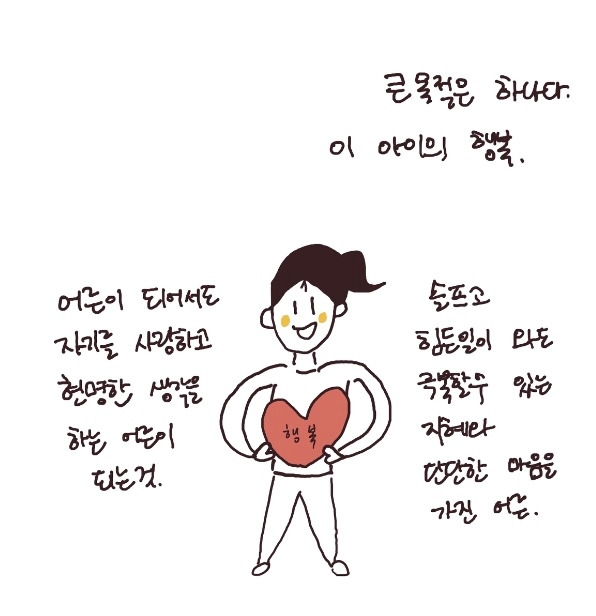 큰 목적은 하나다.
이 아이의 행복.
어른이 되어서도
자기를 사랑하고
현명한 생각을
하는 어른이
되는것.
행복
슬프고
힘든일이 와도
극복할수 있는
지혜와
단단한 마음을
가진 어른.